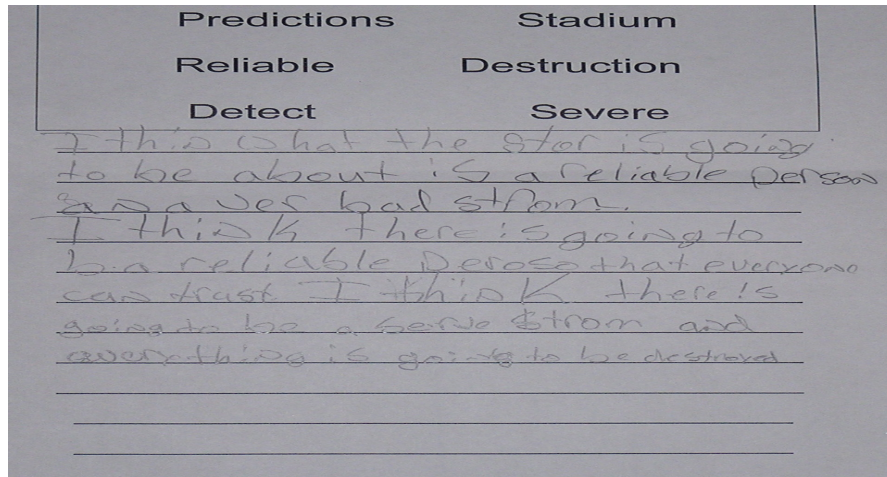 Predictions Stadium
Reliable Destruction
Detect Severe
I thin what the stor is going
to be about is a reliable person
and a ver bad strom.
I think there is going to
b a reliable peroso that everyone
can trust I think there is
going to be a serve strom and
everything is going to be destroyed